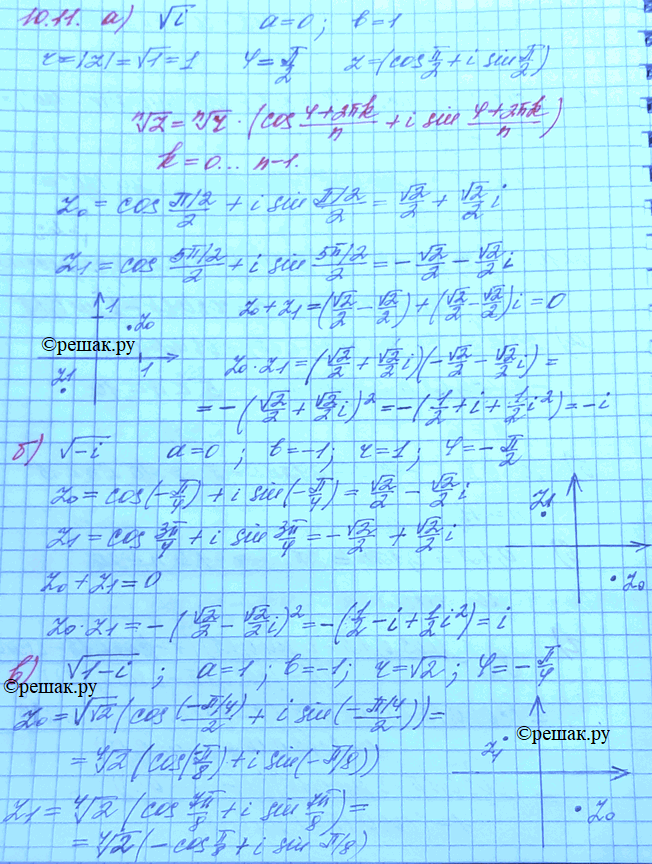 10.11. а) √i a=0; b=1
r=|z|=√1=1 φ=π/2 z=(cos π/2 + i sin π/2)
ⁿ√z = ⁿ√r · (cos (φ+2πk)/n + i sin (φ+2πk)/n)
k=0... n-1.
z₀ = cos (π/2)/2 + i sin (π/2)/2 = √2/2 + √2/2 i
z₁ = cos (5π/2)/2 + i sin (5π/2)/2 = -√2/2 - √2/2 i
1 z₀ z₀+z₁=(√2/2 - √2/2)+(√2/2 - √2/2)i=0
©решак.ру
z₁ 1 z₀·z₁=(√2/2 + √2/2 i)(-√2/2 - √2/2 i)=
= -(√2/2 + √2/2 i)² = -(1/2 + i + 1/2 i²) = -i
б) √-i a=0; b=-1; r=1; φ=-π/2
z₀ = cos(-π/4) + i sin(-π/4) = √2/2 - √2/2 i
z₁ = cos 3π/4 + i sin 3π/4 = -√2/2 + √2/2 i
z₁
z₀+z₁=0
z₀
z₀·z₁ = -(√2/2 - √2/2 i)² = -(1/2 - i + 1/2 i²) = i
в) √1-i; a=1; b=-1; r=√2; φ=-π/4
©решак.ру
z₀ = √√2 (cos (-π/4)/2 + i sin (-π/4)/2)) =
= ⁴√2 (cos(-π/8) + i sin(-π/8))
©решак.ру
z₁
z₀
z₁ = ⁴√2 (cos 7π/8 + i sin 7π/8) =
= ⁴√2 (-cos π/8 + i sin π/8)